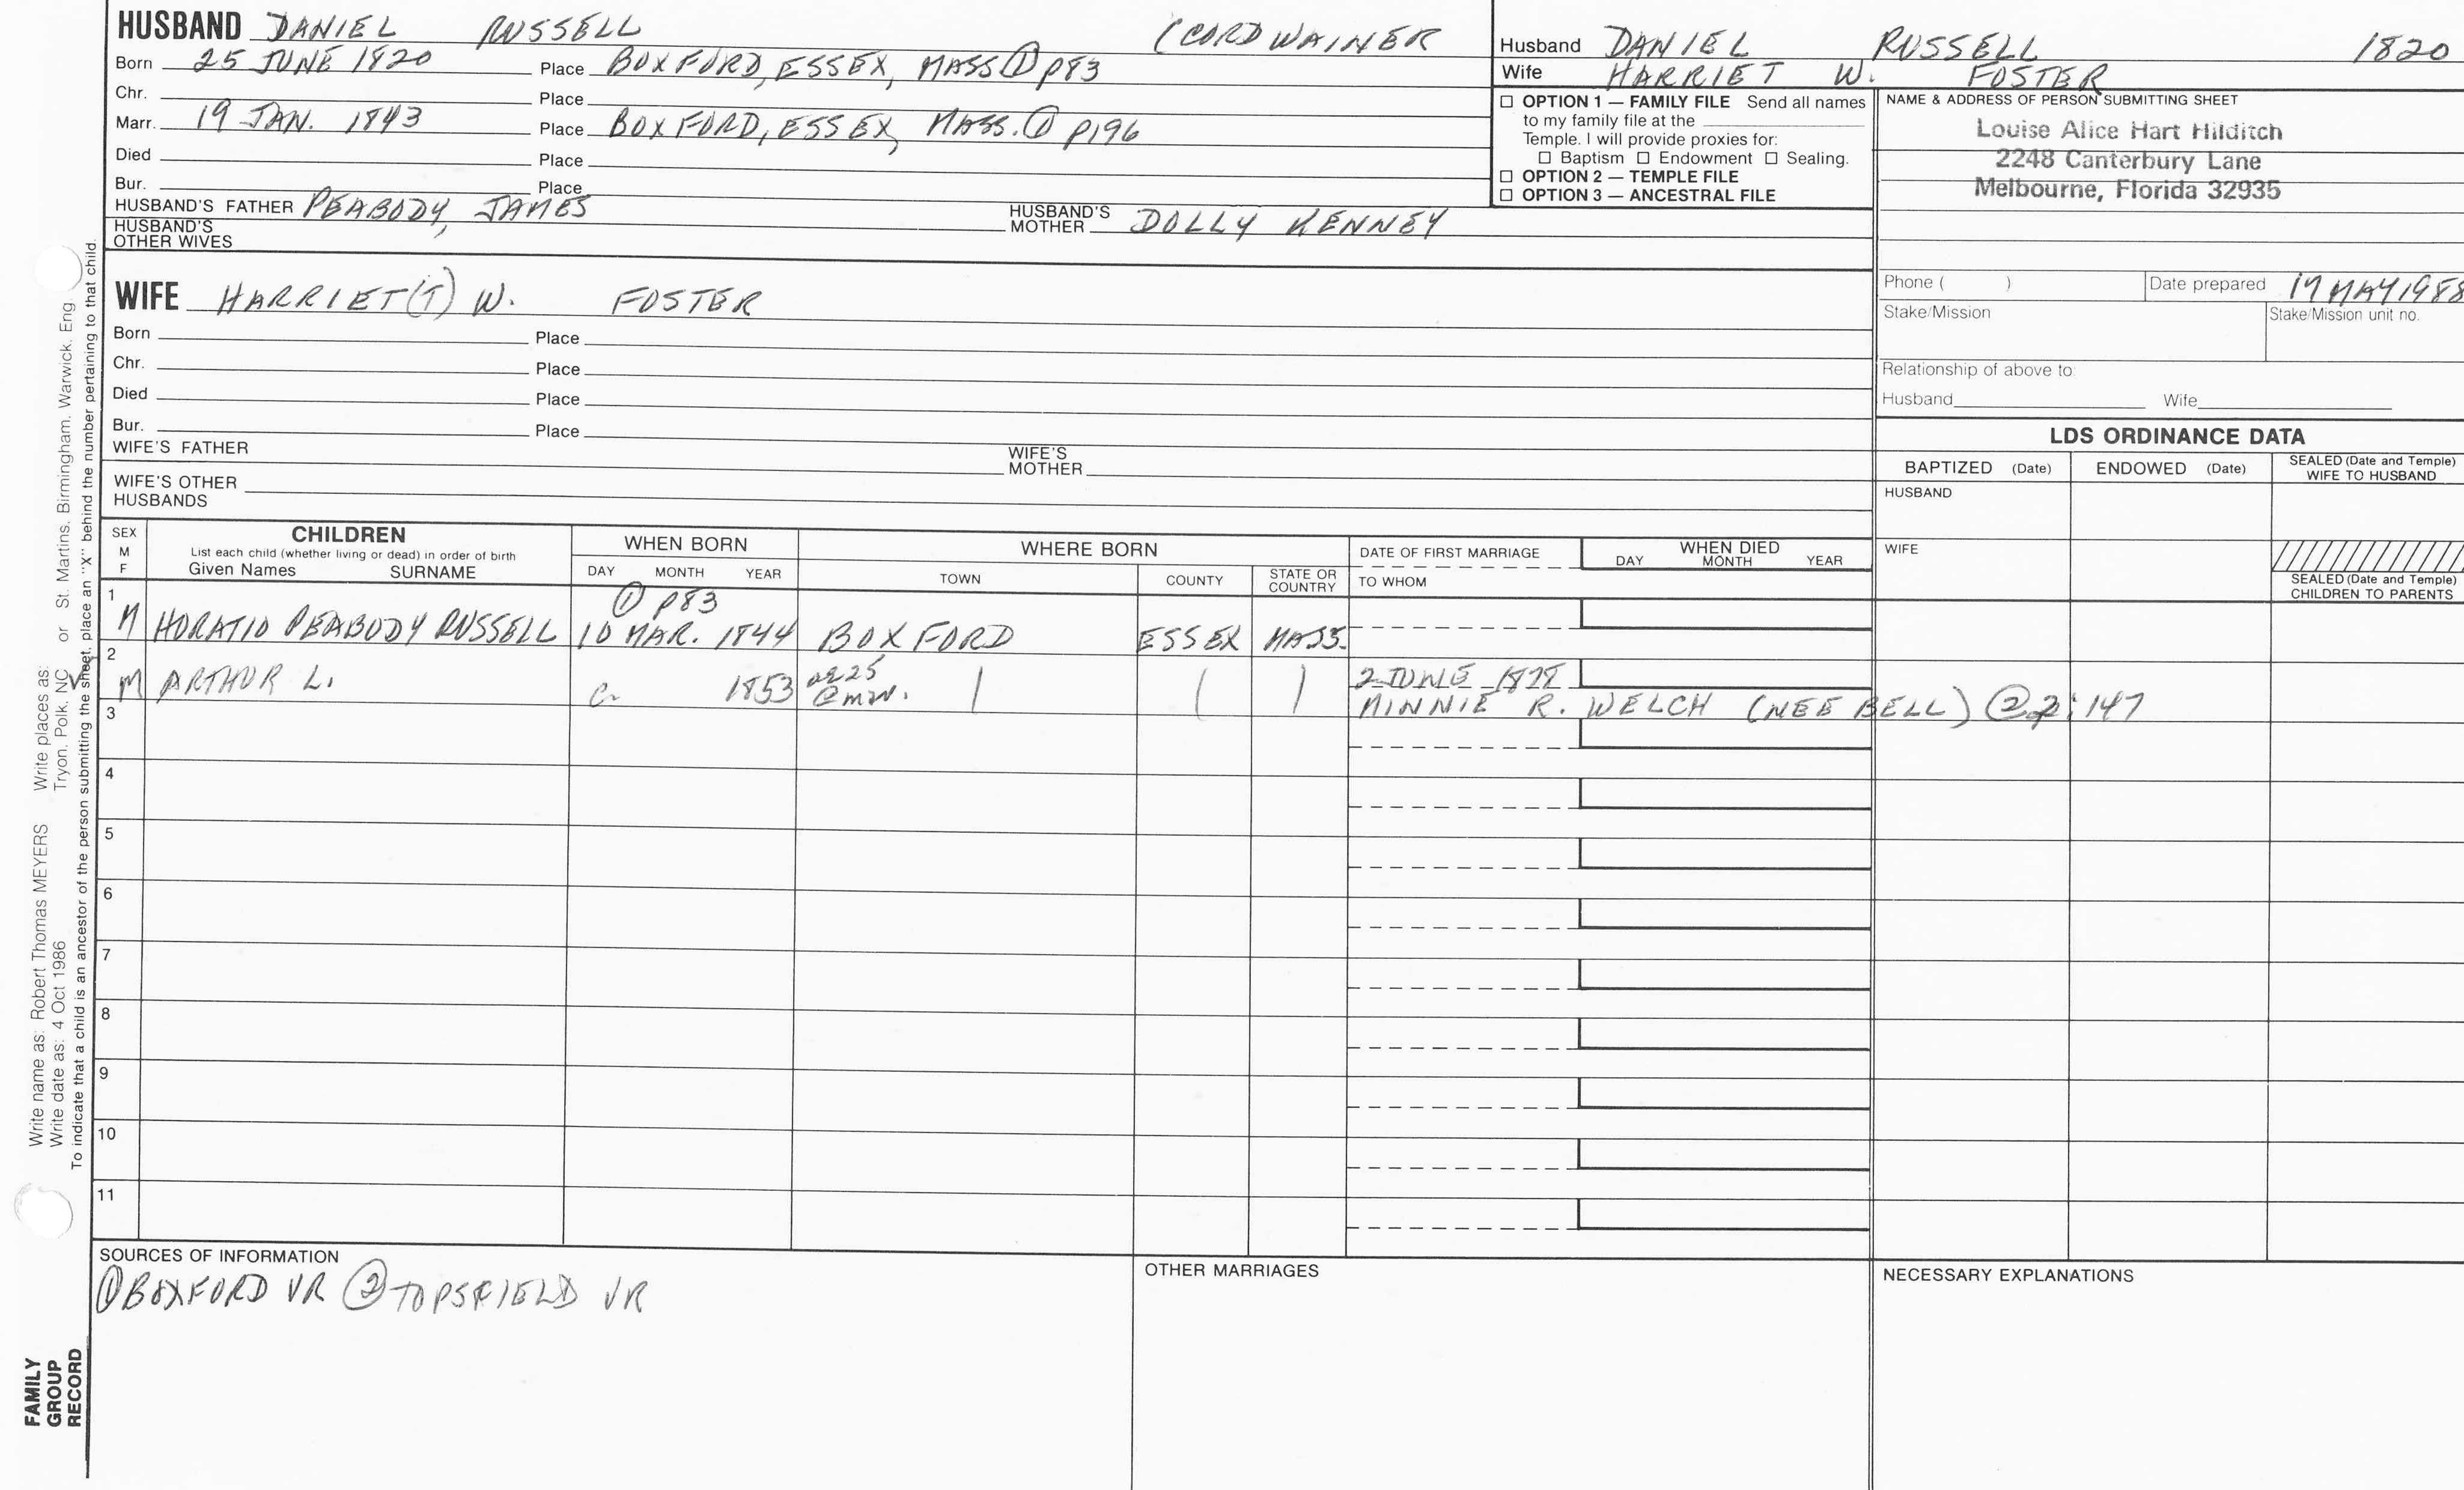 HUSBAND DANIEL RUSSELL (CORDWAINER
Born 25 JUNE 1820 Place BOXFORD, ESSEX, MASS ① p83
Chr. Place
Marr. 19 JAN. 1843 Place BOXFORD, ESSEX, MASS. ① p196
Died Place
Bur. Place
HUSBAND'S FATHER PEABODY, JAMES HUSBAND'S MOTHER DOLLY KENNEY
HUSBAND'S OTHER WIVES
Husband DANIEL RUSSELL 1820
Wife HARRIET W. FOSTER
☐ OPTION 1 — FAMILY FILE Send all names
to my family file at the
Temple. I will provide proxies for:
☐ Baptism ☐ Endowment ☐ Sealing.
☐ OPTION 2 — TEMPLE FILE
☐ OPTION 3 — ANCESTRAL FILE
NAME & ADDRESS OF PERSON SUBMITTING SHEET
Louise Alice Hart Hilditch
2248 Canterbury Lane
Melbourne, Florida 32935
Phone ( ) Date prepared 17 MAY 1988
Stake/Mission Stake/Mission unit no.
Relationship of above to:
Husband Wife
WIFE HARRIET(T) W. FOSTER
Born Place
Chr. Place
Died Place
Bur. Place
WIFE'S FATHER WIFE'S MOTHER
WIFE'S OTHER HUSBANDS
LDS ORDINANCE DATA
BAPTIZED (Date) ENDOWED (Date) SEALED (Date and Temple) WIFE TO HUSBAND
HUSBAND
WIFE
SEALED (Date and Temple) CHILDREN TO PARENTS
SEX M F
CHILDREN
List each child (whether living or dead) in order of birth
Given Names SURNAME
WHEN BORN
DAY MONTH YEAR
WHERE BORN
TOWN COUNTY STATE OR COUNTRY
DATE OF FIRST MARRIAGE
TO WHOM
WHEN DIED
DAY MONTH YEAR
1 ① p83
M HORATIO PEABODY RUSSELL 10 MAR. 1844 BOXFORD ESSEX MASS.
2 M ARTHUR L. c. 1853 ae 25 @ mar. 2 JUNE 1878
MINNIE R. WELCH (NEE BELL) ② 2:147
3
4
5
6
7
8
9
10
11
SOURCES OF INFORMATION
① BOXFORD VR ② TOPSFIELD VR
OTHER MARRIAGES
NECESSARY EXPLANATIONS
FAMILY
GROUP
RECORD
Write name as: Robert Thomas MEYERS Write places as:
Write date as: 4 Oct 1986 Tryon, Polk, NC or St. Martins, Birmingham, Warwick, Eng
To indicate that a child is an ancestor of the person submitting the sheet, place an "X" behind the number pertaining to that child.